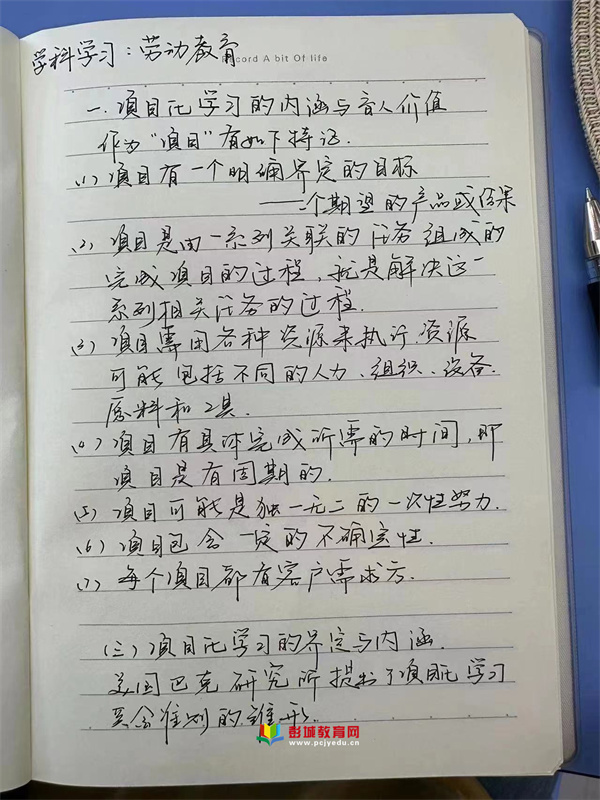 学科学习：劳动教育
Record A bit Of life
一.项目化学习的内涵与育人价值
作为“项目”有如下特征.
(1) 项目有一个明确界定的目标
——一个期望的产品或结果
(2) 项目是由一系列关联的任务组成的
完成项目的过程，就是解决这一
系列相关任务的过程.
(3) 项目需用各种资源来执行.资源
可能包括不同的人力、组织、设备.
原料和工具.
(4) 项目有具体完成所需的时间，即
项目是有周期的.
(5) 项目可能是独一无二的一次性努力.
(6) 项目包含一定的不确定性.
(7) 每个项目都有客户需求方.
(三) 项目化学习的界定与内涵.
美国巴克研究所提出了项目化学习
黄金准则的雏形.
彭城教育网
www.pcjyedu.cn